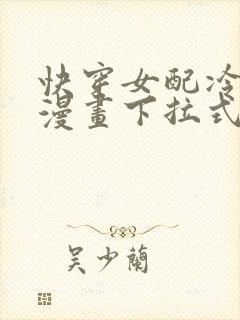 快穿女配冷
漫畫下拉式
吴少蘭